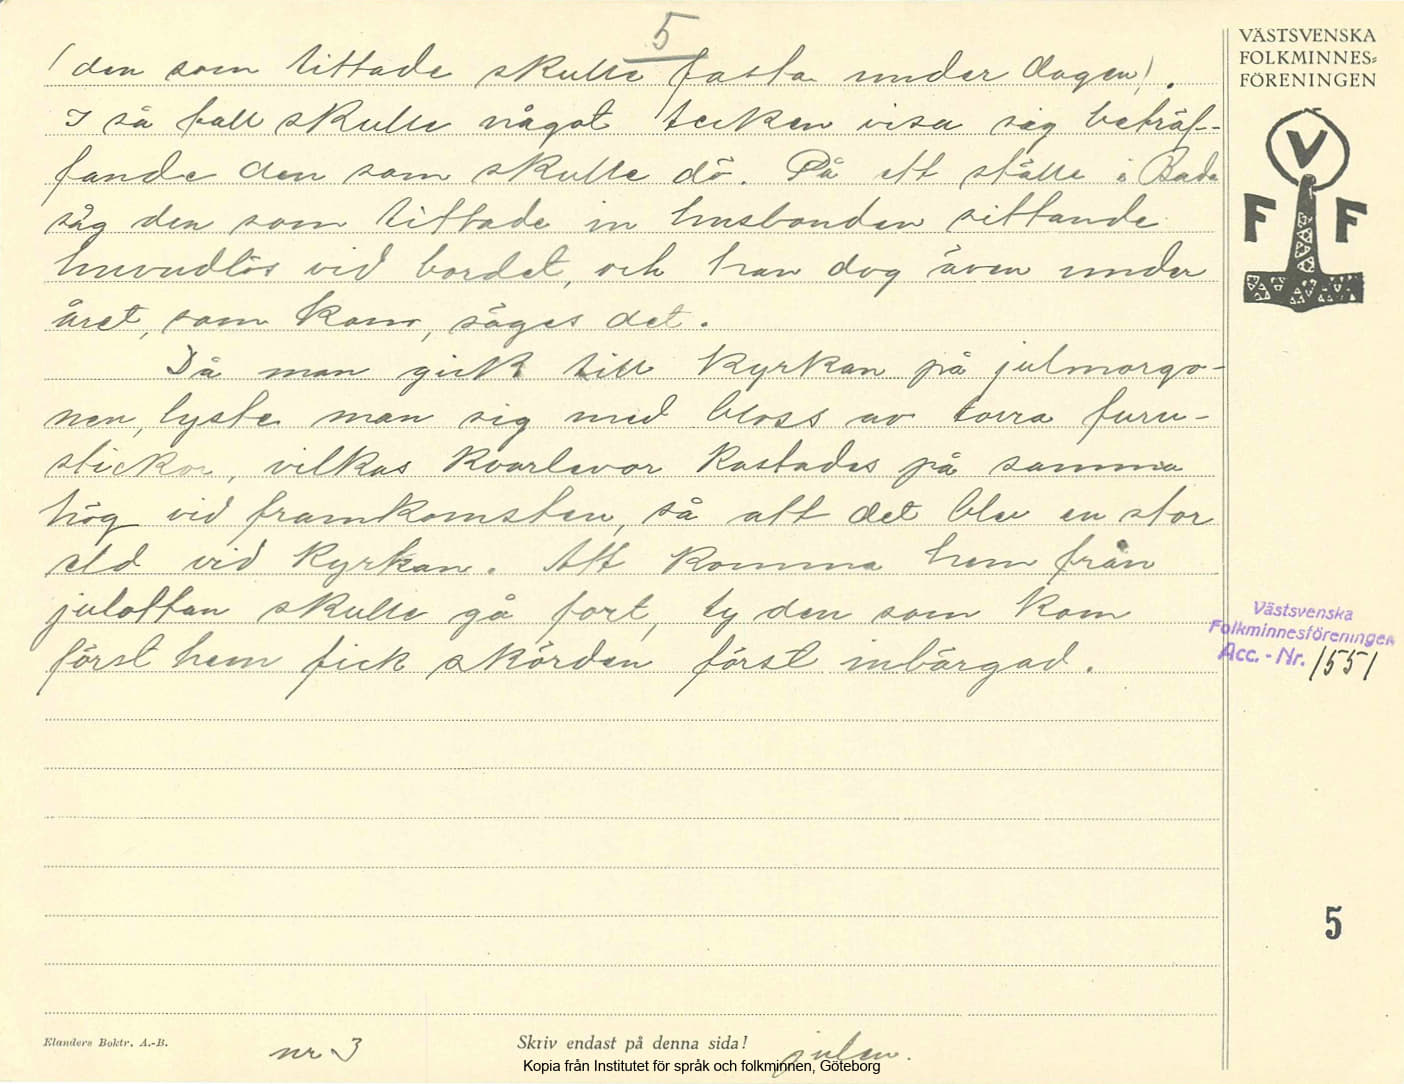 5
(den som tittade skulle fasta under dagen).
I så fall skulle något tecken visa sig beträf-
fande den som skulle dö. På ett ställe i Bada
såg den som tittade in husbonden sittande
huvudlös vid bordet, och han dog även under
året, som kom, säges det.
Då man gick till kyrkan på julmorgo-
nen, lyste man sig med bloss av torra furu-
stickor, vilkas kvarlevor kastades på samma
hög vid framkomsten, så att det blev en stor
eld vid kyrkan. Att komma hem från
julottan skulle gå fort, ty den som kom
först hem fick skörden först inbärgad.
VÄSTSVENSKA
FOLKMINNES=
FÖRENINGEN
V
F F
Västsvenska
Folkminnesföreningen
Acc. - Nr. 1551
5
Elanders Boktr. A.-B.
nr 3
Skriv endast på denna sida!
julen.
Kopia från Institutet för språk och folkminnen, Göteborg